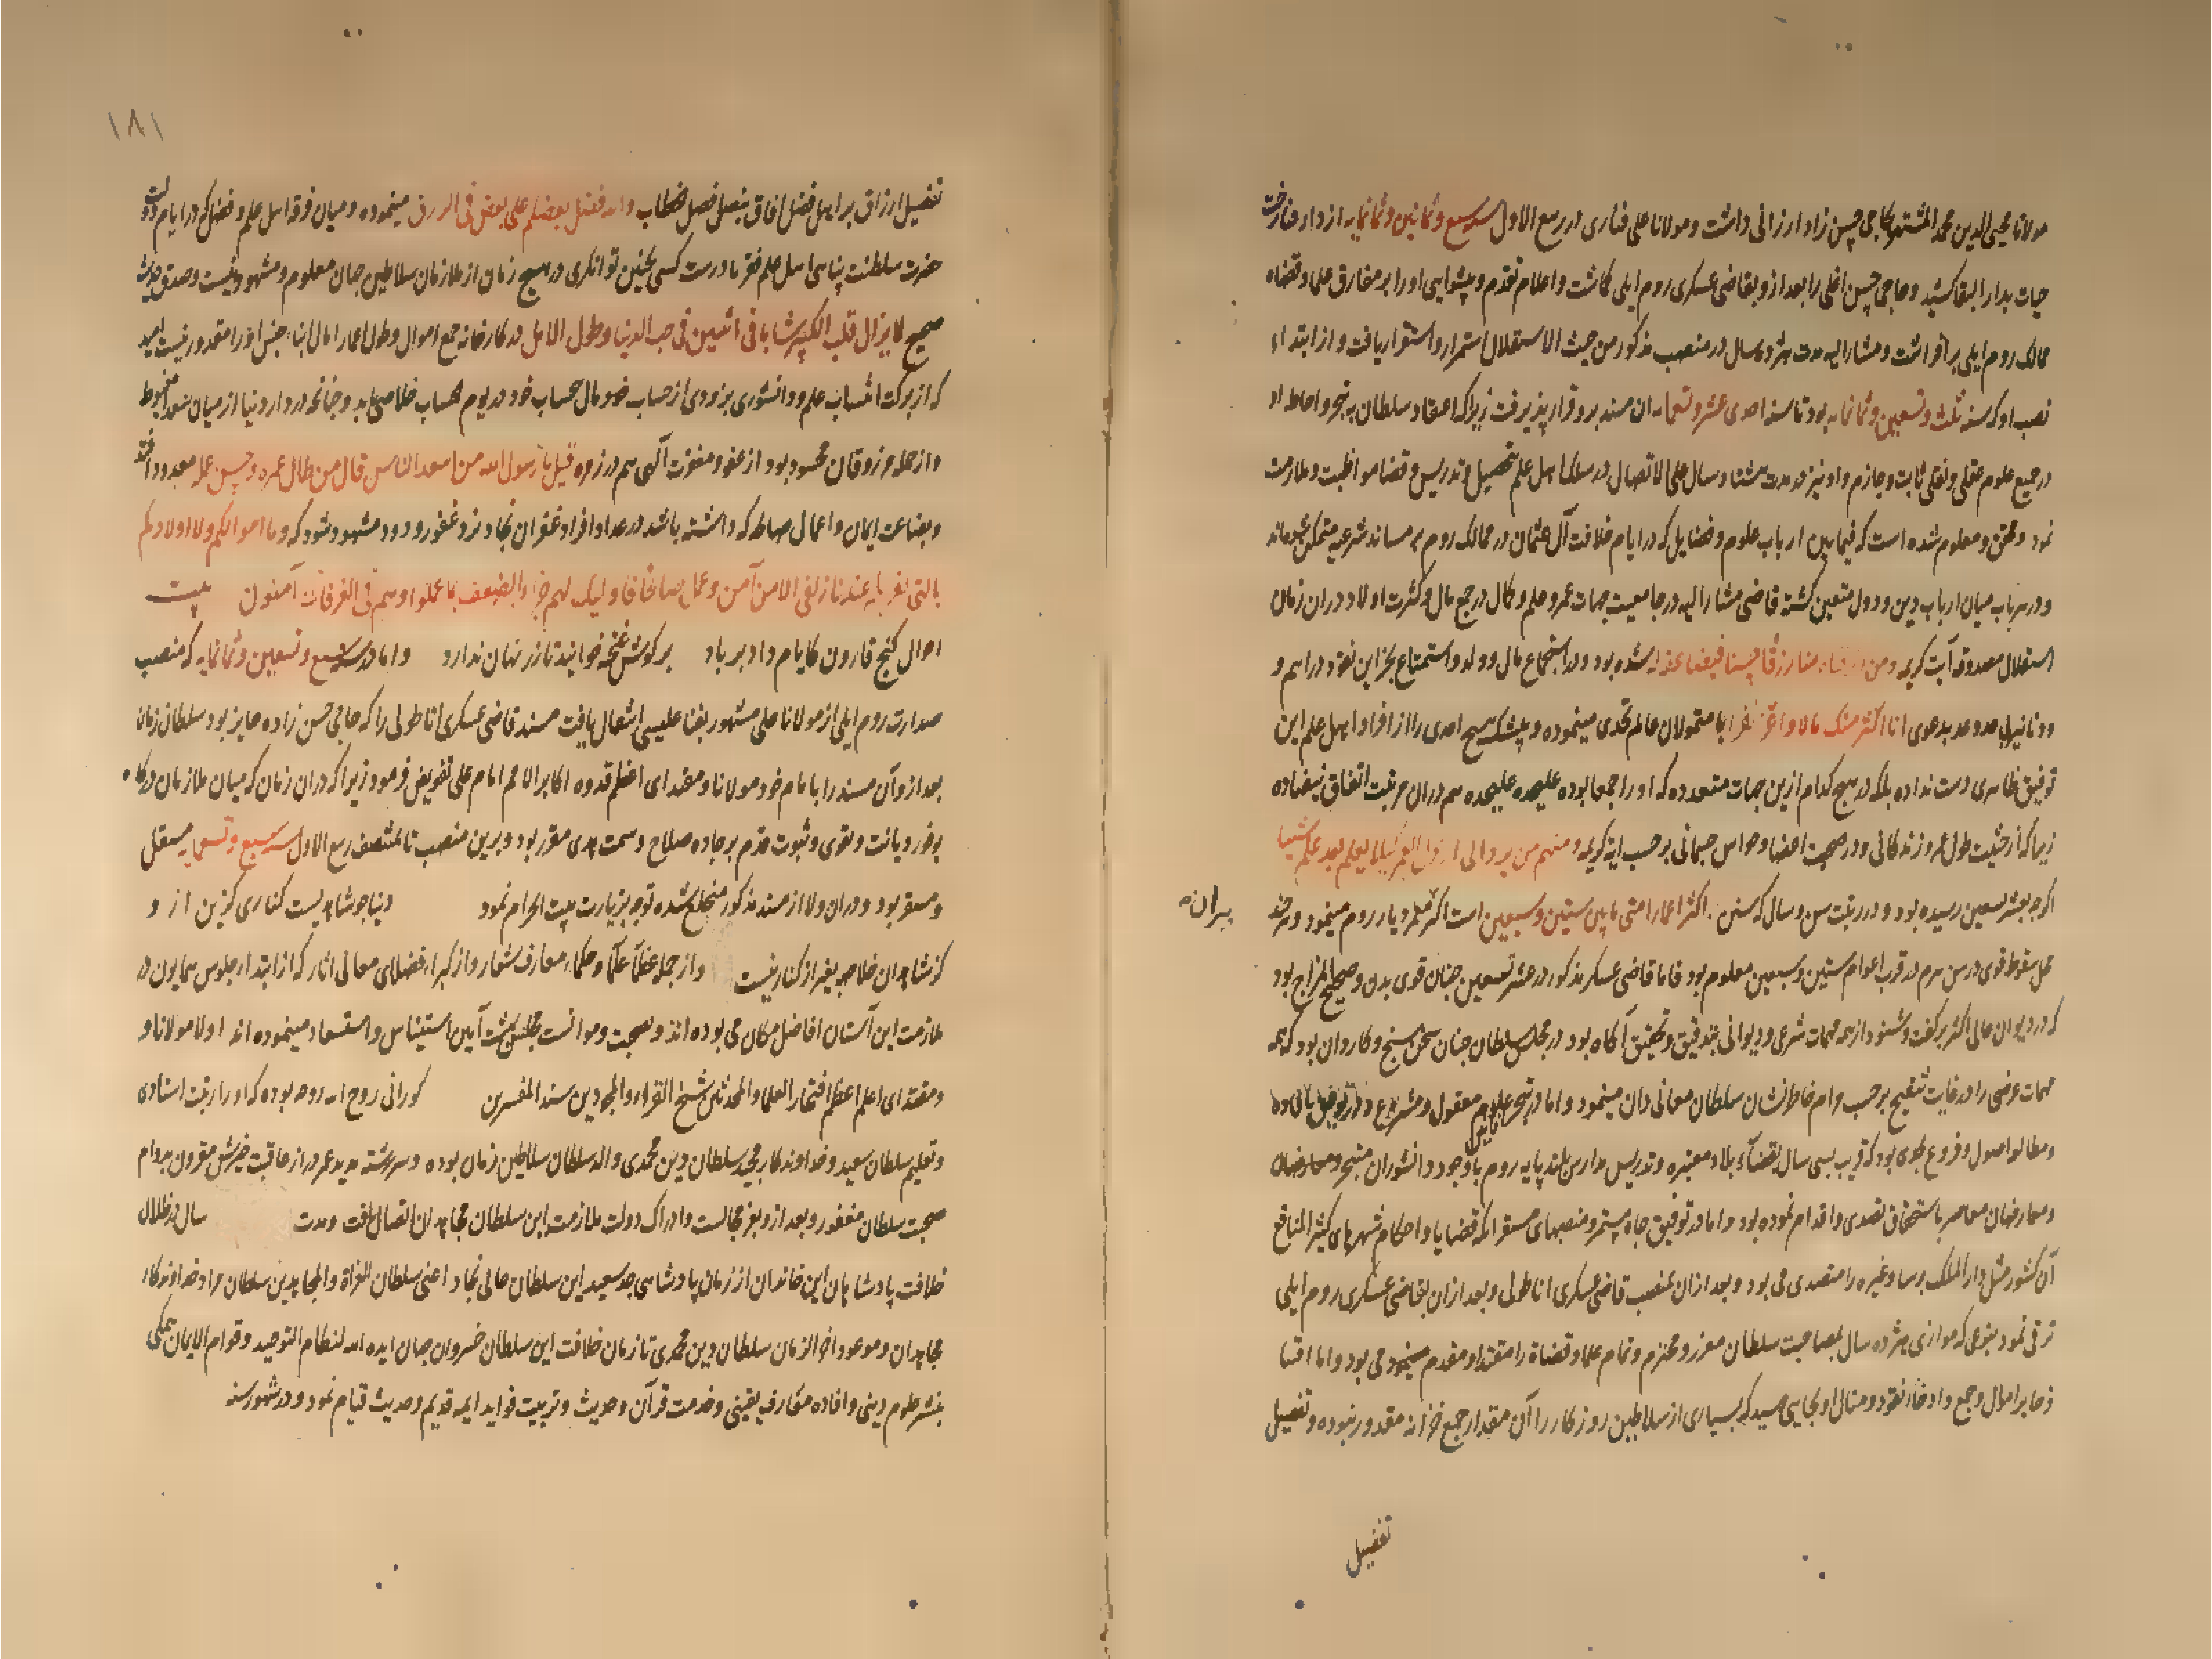 مولانا محیی الدین محمد المشتهر بحاجی حسن زاده ارزانی داشت و مولانا علی فناری در ربیع الاول سنه سبع و ثمانین و ثمانمایه از دار فنا رخت
حیات بدار البقا کشید و حاجی حسن اغلی را بعد ازو بقاضی عسکری روم ایلی کماشت و اعلام تقدم و پیشوایی او را بر مفارق علما و قضاه
ممالک روم ایلی برافراشت و مشار الیه مدت هژده سال در منصب مذکور من حیث الاستقلال استمرار و استقرار یافت و از ابتداء
نصب او که سنه ثلث و تسعین و ثمانمایه بود تا سنه احدی عشر و تسعمایه ان مسند برو قرار پذیرفت زیرا که اعتقاد سلطان به تبحر و احاطه او
در جمیع علوم عقلی و نقلی ثابت و جازم و او نیز در مدت هشتاد سال علی الاتصال در سلک اهل علم بتحصیل و تدریس و قضا مواظبت و ملازمت
نمود و محقق و معلوم شده است که فیما بین ارباب علوم و فضایل که در ایام خلافت آل عثمان در ممالک روم بر مساند شرعیه متمکن
و در هر باب میان ارباب دین و دول متعین کشته قاضی مشار الیه در جامعیت جهات عمر و علم و کمال در جمع مال و کثرت اولاد در ان زمان
استقلال مصدوقه آیت کریمه و من رزقناه منا رزقا حسنا فهو ینفق شده بود و در استجماع مال و ولد و استمتاع بجز این نقود دراهم و
دنانیر بدعوی انا اکثر منک مالا و اعز نفرا با متمولان عالم تحدی مینموده و بیشک هیچ احدی را از افراد اهل علم این
توفیق ظاهری دست نداده بلکه در هیچ کدام ازین جهات متعدده که او را جمعا بوده علیحده علیحده هم دران مرتبت اتفاق نیفتاده
زیرا که از حیثیت طول عمر و زندکانی و در صحت اعضا و حواس جسمانی بر حسب ایه کریمه و منهم من یرد الی ارذل العمر لکیلا یعلم بعد علم شیئا
اکرچه بعشر تسعین رسیده بود و در رتبت سن و سال که سنن اکثر اعمار امتی ما بین ستین و سبعین است
محل سقوط قوی در سن هرم در قرب اعوام ستین و سبعین معلوم بود فاما قاضی عسکر مذکور در عشر تسعین چنان قوی بدن و صحیح المزاج بود
که در دیوان عالی اکثر بر کفت و شنود از همه مهمات شرعی و دیوانی بتدقیق و تحقیق آکاه بود در مجلس سلطان چنان سخن سنج و کاردان بود که همه
مهمات عرضی را در غایت تنقیح بر حسب مرام خاطر نشان سلطان معانی دان مینمود و اما در تبحر علوم معقول و مشروع
و مطالعه اصول و فروع بود که قریب بسی سال بقضاء بلاد معتبره و تدریس مدارس بلند پایه روم با وجود دانشوران متبحر
و معارضان معاصر باستحقاق تصدی و اقدام نموده بود و اما در توفیق جاه مستمر و منصبهای مستقر که قضایا و احکام شهرهای کثیر المنافع
آن کشور مثل دار الملک برسا و غیره را متصدی می بود و بعد از ان بمنصب قاضی عسکری اناطولی و بعد از ان بقاضی عسکری روم ایلی
ترقی نمود بنوعی که موازی هژده سال بمصاحبت سلطان معزز و محترم و تمام علما و قضاة را مقتدا و مقدم می بود و اما اقتنا
ذخایر اموال و جمع و ادخار نقود و منال او بجایی رسید که بسیاری از سلاطین روزکار را آن مقدار جمع خزانه مقدور نبوده و تفضیل
تفضیل
۱۸۱
تفضیل ارزاق بر اهل فضل افاق بنص فصل خطاب و الله فضل بعضکم علی بعض فی الرزق مینموده و میان فرق اهل علم و فضل که در ایام دولت
حضرت سلطنت پناهی اهل علم کسی بچنین توانکری در هیچ زمان از ملازمان سلاطین جهان معلوم و مشهود نیست و صدق حدیث
صحیح لا یزال قلب الکبیر شابا فی اثنین فی حب الدنیا و طول الامل در کارخانه جمع اموال و طول اعمار امثال ابناء جنس او را مقدور نیست امید
که از برکت انتساب علم و دانشوری بزودی از حساب فضول مال حساب خود در یوم الحساب خلاص یابد و چنانچه در دار دنیا از میان
و از جمله مرزوقان محسود بود از عفو و مغفرت آلهی هم در زمره قیل یا رسول الله من اسعد الناس قال من طال عمره و حسن عمله معدود افتد
و بضاعت ایمان و اعمال صالحه که داشته باشد در عداد افراد غفران نجاد نزد غفور ودود مشهود شود که و ما اموالکم و لا اولادکم
بالتی تقربکم عندنا زلفی الا من آمن و عمل صالحا فاولیک لهم جزاء الضعف بما عملوا و هم فی الغرفات آمنون بیت
احوال کنج قارون کایام داد بر باد بر کوش غنچه خوانید تا زر نهان ندارد و اما در سنه سبع و تسعین و ثمانمایه که منصب
صدارت روم ایلی از مولانا علی مشهور بفنا علیسی انتقال یافت مسند قاضی عسکری اناطولی را که حاجی حسن زاده حایز بود سلطان زمان
بعد ازو آن مسند را با امام خود مولانا و مقتدای اعظم قدوه اکابر الامم امام علی تفویض فرمود زیرا که دران زمان که میان ملازمان درکاه
بوفور دیانت و تقوی و ثبوت قدم بر جاده صلاح و سمت هدی مقرر بود و برین منصب تا منتصف ربیع الاول سنه سبع و تسعمایه مستقل
و مستقر بود و دران ولا از مسند مذکور منخلع شده توجه بزیارت بیت الحرام نمود دنیا چو شاهدیست کناری کزین ازو
کز شاهدان خلاصه بغیر از کنار نیست و از جمله عظماء علما و حکماء معارف شعار و از کبراء فضلای معالی اثار که از ابتداء جلوس همایون در
ملازمت این آستان افاضل مکان می بوده اند و بصحبت و موانست مجلس بهشت آیین استیناس و استسعاد مینموده اند اولا مولانا و
و مقتدای اعلم اعظم افتخار العلما و المحدثین شیخ القراء و المجودین سند المفسرین کورانی روح الله روحه بوده که او را رتبت استادی
و تعلیم سلطان سعید و خداوندکار مجید سلطان دین محمدی والد سلطان سلاطین زمان بوده و سررشته مدید عمر دراز عاقبت خیرش مقرون بدوام
صحبت سلطان مغفور و بعد ازو بعز مجالست و ادراک دولت ملازمت این سلطان مجاهدان اتصال یافت و مدت سال در ظلال
خلافت پادشاهان این خاندان از زمان پادشاهی جد سعید این سلطان عالی نجاد اعنی سلطان الغزاة و المجاهدین سلطان مراد خداوندکار
مجاهدان و موعود اخر الزمان سلطان دین محمدی تا زمان خلافت این سلطان خسروان جهان ایده الله لنظام التوحید و قوام الایمان همکی
بنشر علوم دینی و افاده معارف یقینی و خدمت قرآن و حدیث و تربیت فواید ایمه قدیم و حدیث قیام نمود و در شهور سنه